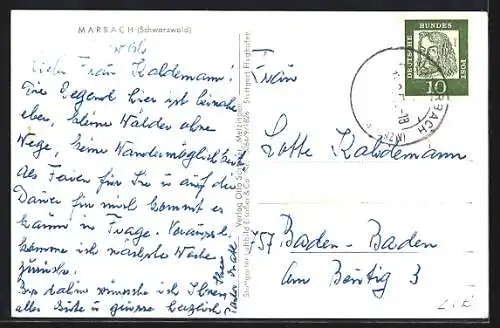 MARBACH (Schwarzwald)
Liebe Frau Kaldemann!
Die Gegend hier ist beinahe
eben, kleine Wälder ohne
Wege, keine Wandermöglichkeit
als Ferien für Sie u auf die
Dauer für mich kommt es
kaum in Frage.
komme ich nächste Woche
zurück.
Bis dahin wünsche ich Ihnen
alles Gute u grüsse herzlich
Ihre
Verlag Otto
Stuttgarter Luftbild Elsäßer & Co.
Stuttgart Flughafen
DEUTSCHE BUNDESPOST
10
MARBACH
Frau
Lotte Kaldemann
757 Baden-Baden
Am Beutig 3